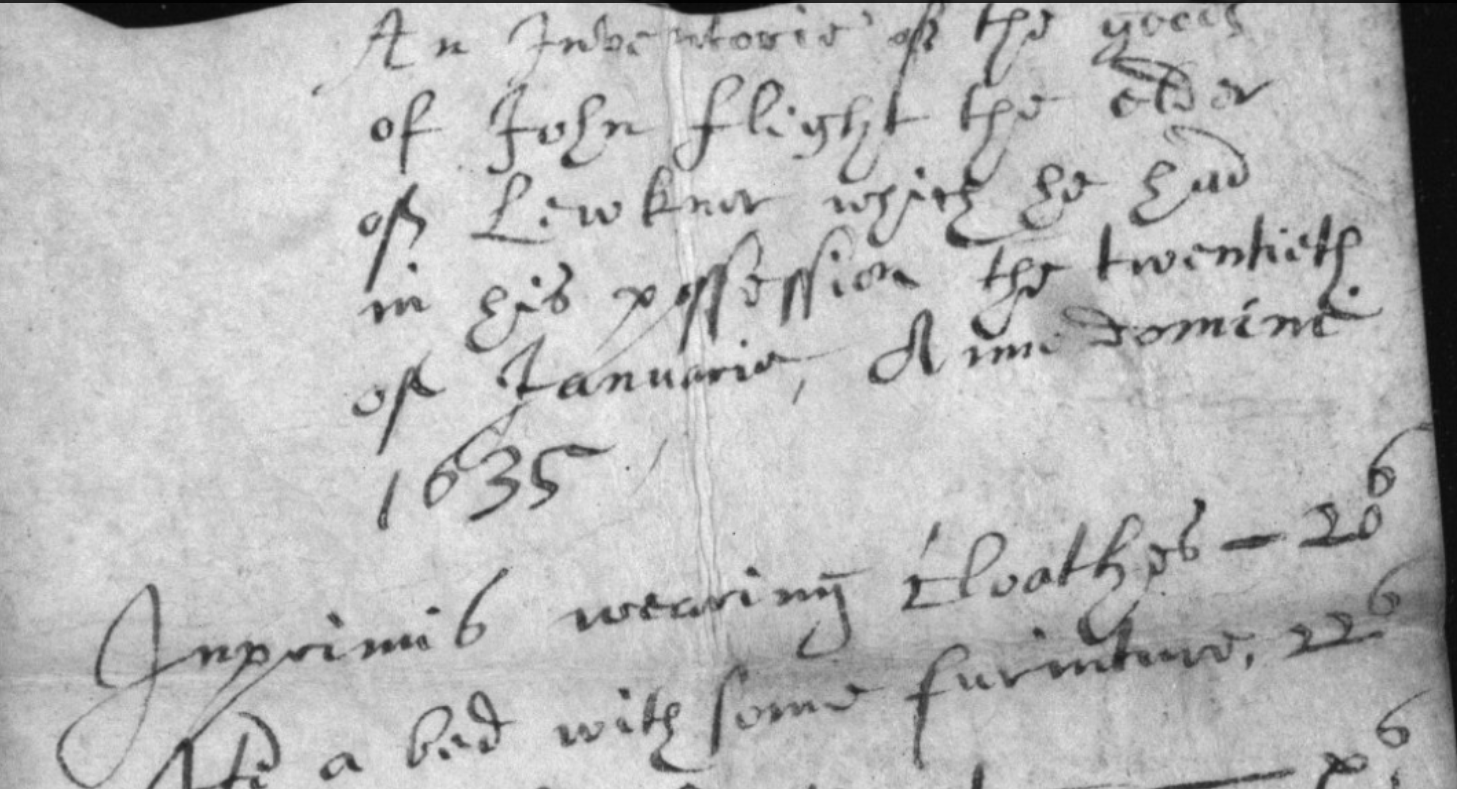 An Inventorie of the goods
of John flight the elder
of Lewknor which he had
in his possession the twentieth
of Januarie, Anno domini
1635
Inprimis wearing Cloathes – 20s
Ite a bed with some furniture, 22s